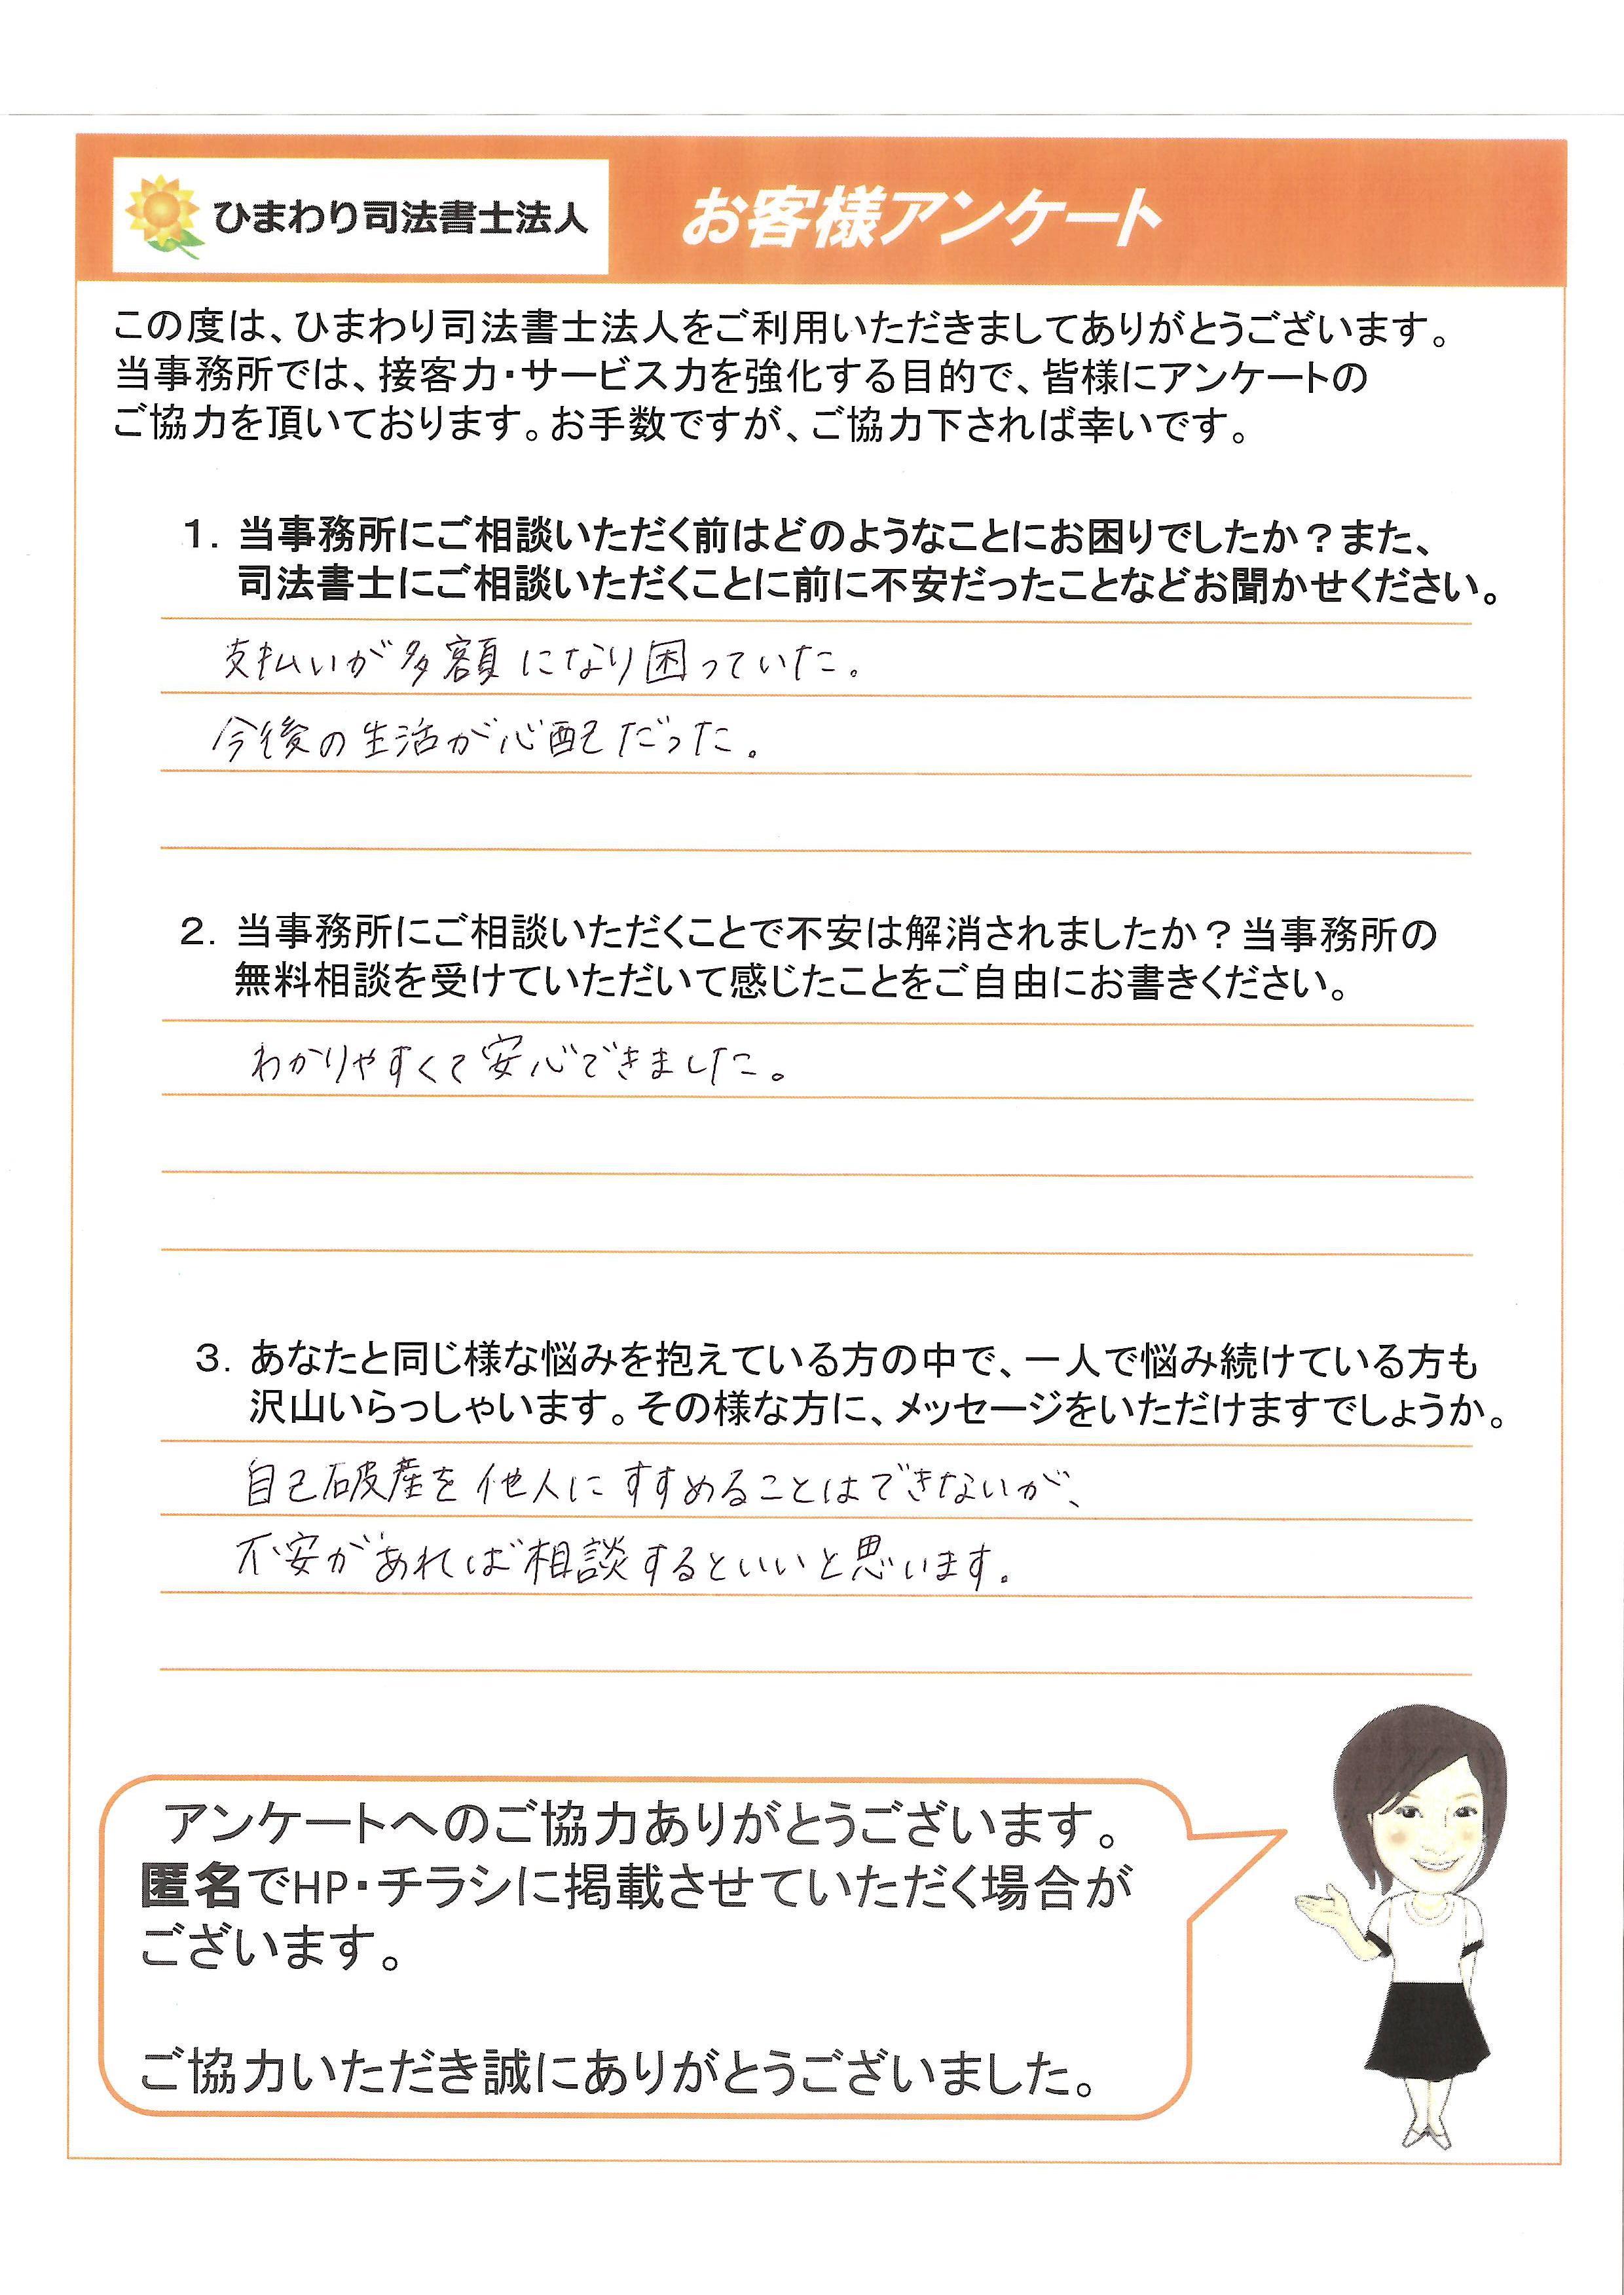 ひまわり司法書士法人
お客様アンケート
この度は、ひまわり司法書士法人をご利用いただきましてありがとうございます。
当事務所では、接客力・サービス力を強化する目的で、皆様にアンケートの
ご協力を頂いております。お手数ですが、ご協力下されば幸いです。
1. 当事務所にご相談いただく前はどのようなことにお困りでしたか？また、
司法書士にご相談いただくことに前に不安だったことなどお聞かせください。
支払いが多額になり困っていた。
今後の生活が心配だった。
2. 当事務所にご相談いただくことで不安は解消されましたか？当事務所の
無料相談を受けていただいて感じたことをご自由にお書きください。
わかりやすくて安心できました。
3. あなたと同じ様な悩みを抱えている方の中で、一人で悩み続けている方も
沢山いらっしゃいます。その様な方に、メッセージをいただけますでしょうか。
自己破産を他人にすすめることはできないが、
不安があれば相談するといいと思います。
アンケートへのご協力ありがとうございます。
匿名でHP・チラシに掲載させていただく場合が
ございます。
ご協力いただき誠にありがとうございました。